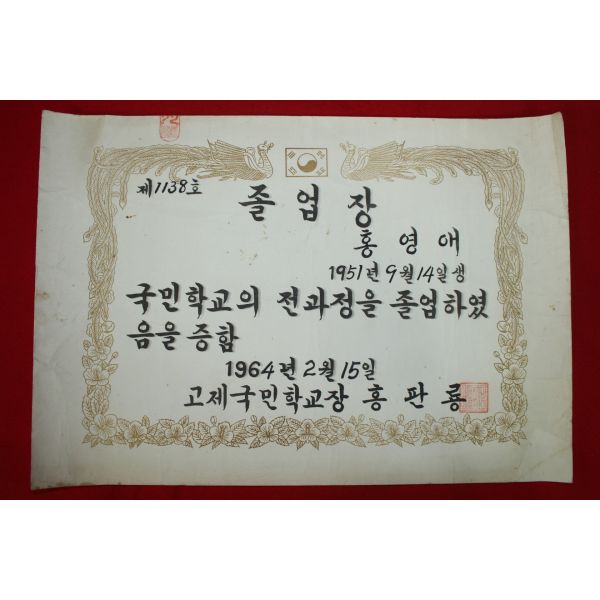 제1138호
졸업장
홍영애
1951년 9월 14일 생
국민학교의 전과정을 졸업하였
음을 증함
1964년 2월 15일
고제국민학교장 홍판룡